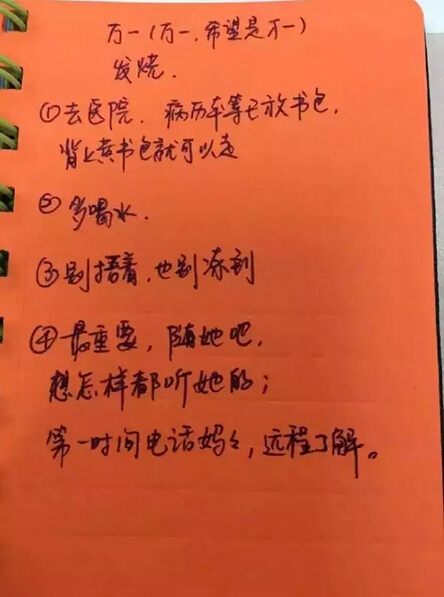 万一（万一，希望是万一）
发烧.
①去医院. 病历本等已放书包，
背上黄书包就可以走
② 多喝水.
③别捂着，也别冻到
④ 最重要，随她吧，
想怎样都听她的；
第一时间电话妈々，远程了解。